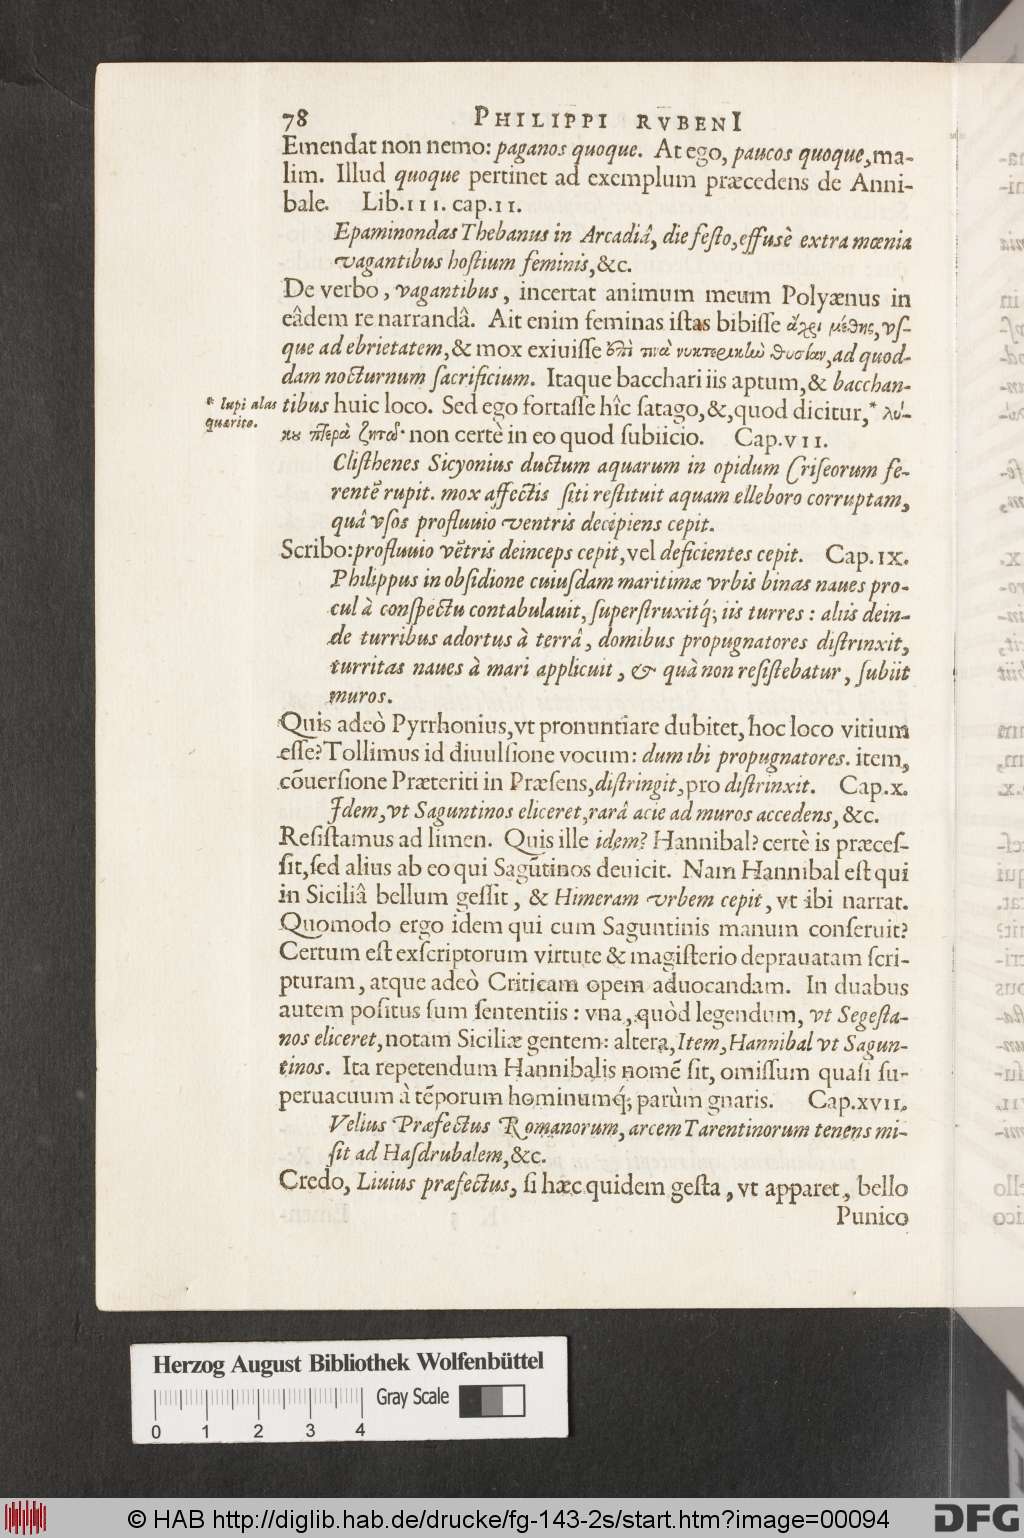 78 PHILIPPI RVBENI
Emendat non nemo: paganos quoque. At ego, paucos quoque, ma-
lim. Illud quoque pertinet ad exemplum præcedens de Anni-
bale. Lib. III. cap. II.
Epaminondas Thebanus in Arcadiâ, die festo, effusè extra mœnia
vagantibus hostium feminis, &c.
De verbo, vagantibus, incertat animum meum Polyænus in
eâdem re narrandâ. Ait enim feminas istas bibisse ἄχρι μέθης, vs-
que ad ebrietatem, & mox exiuisse ἐπὶ τινὰ νυκτερικὴν θυσίαν, ad quod-
dam nocturnum sacrificium. Itaque bacchari iis aptum, & bacchan-
* lupi alas
quærite.
tibus huic loco. Sed ego fortasse hîc satago, &, quod dicitur, * λύ-
κου πτερὰ ζητῶ· non certè in eo quod subiicio. Cap. VII.
Clisthenes Sicyonius ductum aquarum in opidum Criseorum fe-
rentẽ rupit. mox affectis siti restituit aquam elleboro corruptam,
quâ vsos profluuio ventris decipiens cepit.
Scribo: profluuio vẽtris deinceps cepit, vel deficientes cepit. Cap. IX.
Philippus in obsidione cuiusdam maritimæ vrbis binas naues pro-
cul à conspectu contabulauit, superstruxitq́; iis turres: aliis dein-
de turribus adortus à terrâ, domibus propugnatores distrinxit,
turritas naues à mari applicuit, & quà non resistebatur, subiit
muros.
Quis adeò Pyrrhonius, vt pronuntiare dubitet, hoc loco vitium
esse? Tollimus id diuulsione vocum: dum ibi propugnatores. item,
cõuersione Præteriti in Præsens, distringit, pro distrinxit. Cap. X.
Idem, vt Saguntinos eliceret, rarâ acie ad muros accedens, &c.
Resistamus ad limen. Quis ille idem? Hannibal? certè is præces-
sit, sed alius ab eo qui Sagũtinos deuicit. Nam Hannibal est qui
in Siciliâ bellum gessit, & Himeram vrbem cepit, vt ibi narrat.
Quomodo ergo idem qui cum Saguntinis manum conseruit?
Certum est exscriptorum virtute & magisterio deprauatam scri-
pturam, atque adeò Criticam opem aduocandam. In duabus
autem positus sum sententiis: vna, quòd legendum, vt Segesta-
nos eliceret, notam Siciliæ gentem: altera, Item, Hannibal vt Sagun-
tinos. Ita repetendum Hannibalis nomẽ sit, omissum quasi su-
peruacuum à tẽporum hominumq́; parùm gnaris. Cap. XVII.
Velius Præfectus Romanorum, arcem Tarentinorum tenens mi-
sit ad Hasdrubalem, &c.
Credo, Liuius præfectus, si hæc quidem gesta, vt apparet, bello
Punico
Herzog August Bibliothek Wolfenbüttel
Gray Scale
0 1 2 3 4
© HAB http://diglib.hab.de/drucke/fg-143-2s/start.htm?image=00094
DFG